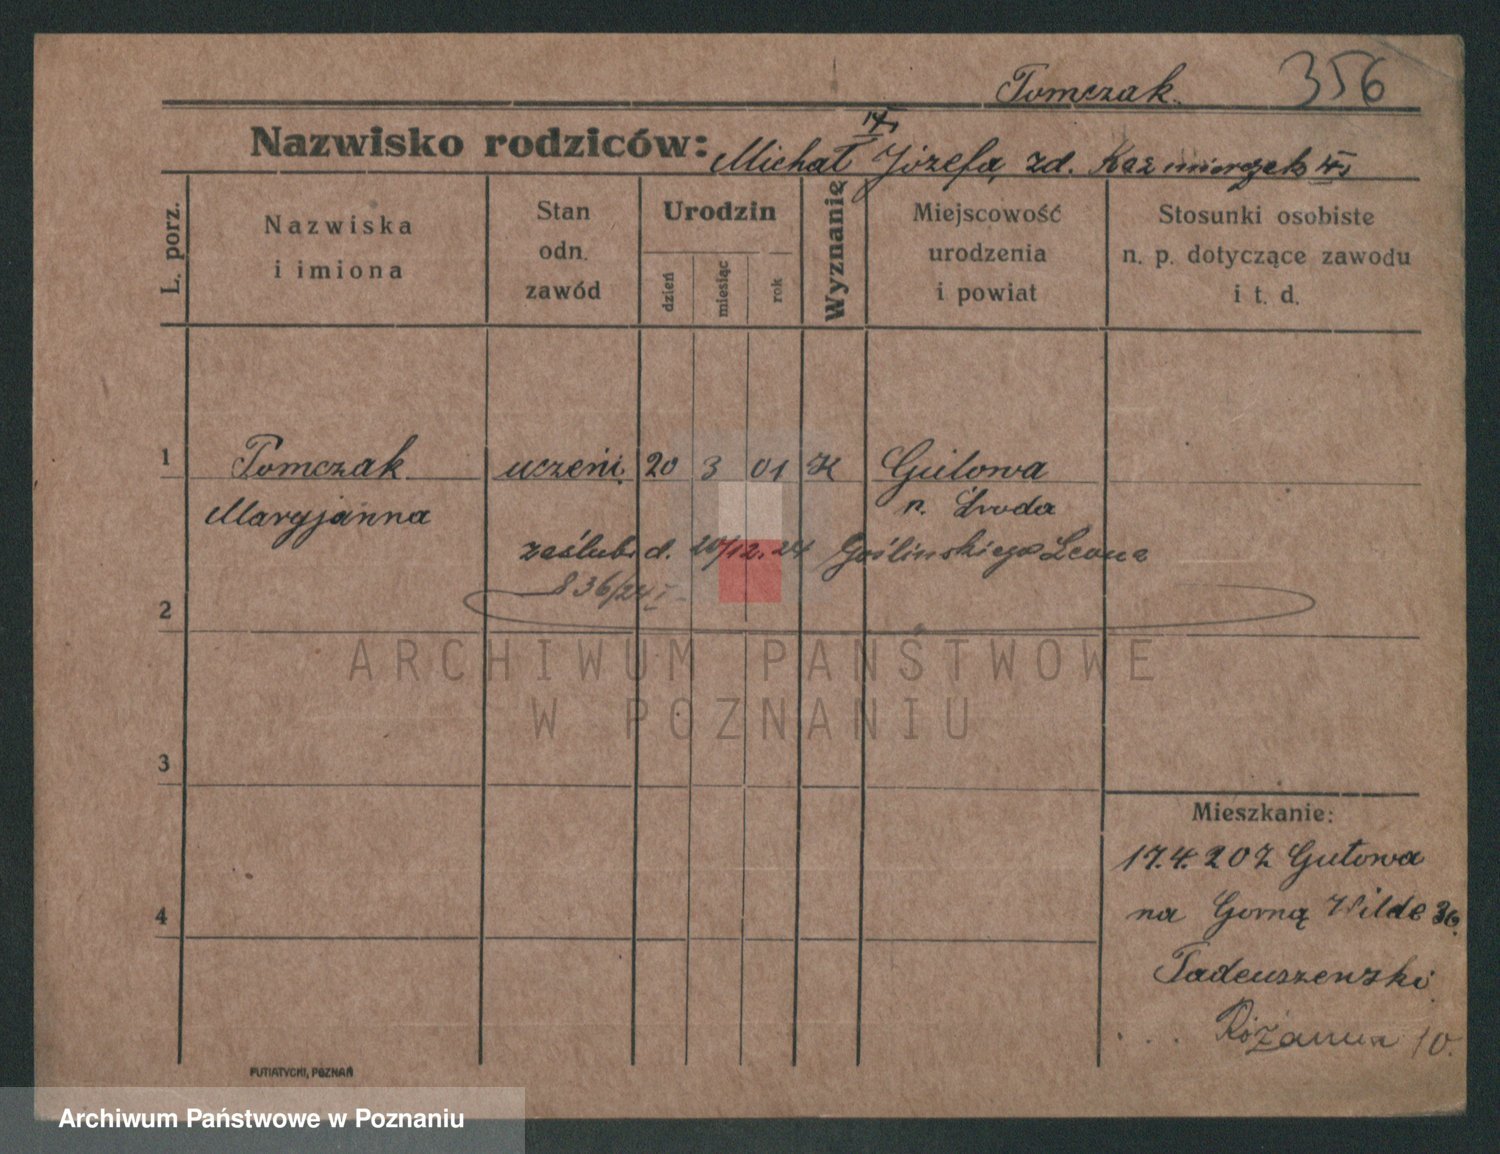 Tomczak. 356
Nazwisko rodziców: Michał Józefa, zd. Kaźmierczak
L. porz.
Nazwiska
i imiona
Stan
odn.
zawód
Urodzin
dzień
miesiąc
rok
Wyznanie
Miejscowość
urodzenia
i powiat
Stosunki osobiste
n. p. dotyczące zawodu
i t. d.
1 Tomczak uczeń. 20 3 01 K Gutowa
Maryjanna p. Środa
zaślub. d. 20/12. 24 Goślinskiego Leona
836/24 I
2
3
4
Mieszkanie:
17.4.20 Z Gutowa
na Gorną Wilde 36.
Tadeuszewski.
Różanna 10.
PUTIATYCKI, POZNAŃ
ARCHIWUM PAŃSTWOWE
W POZNANIU
Archiwum Państwowe w Poznaniu